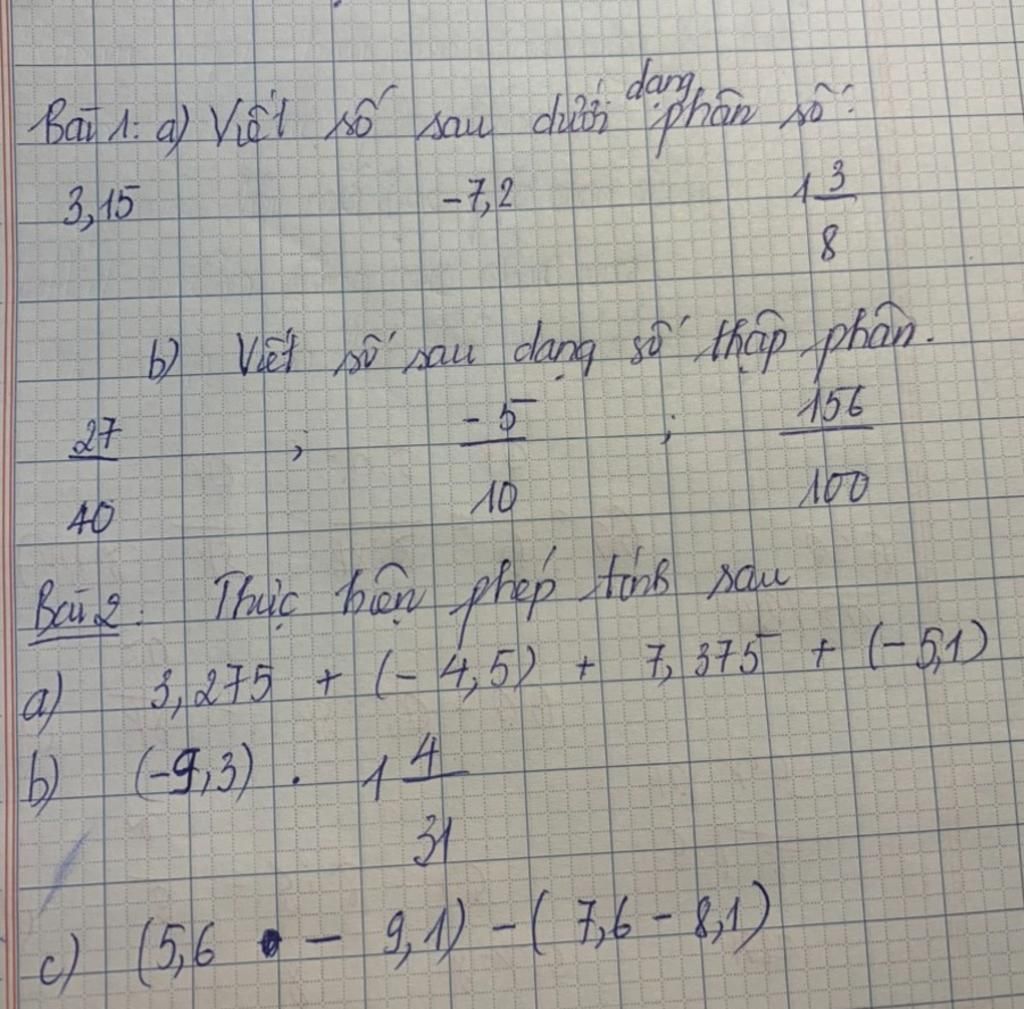 Bài 1: a) Viết số sau dưới dạng phân số:
3,15 -7,2 1 3/8
b) Viết số sau dạng số thập phân.
27/40 ; -5/10 ; 156/100
Bài 2: Thực hiện phép tính sau
a) 3,275 + (-4,5) + 7,375 + (-5,1)
b) (-9,3) . 1 4/31
c) (5,6 - 9,1) - (7,6 - 8,1)